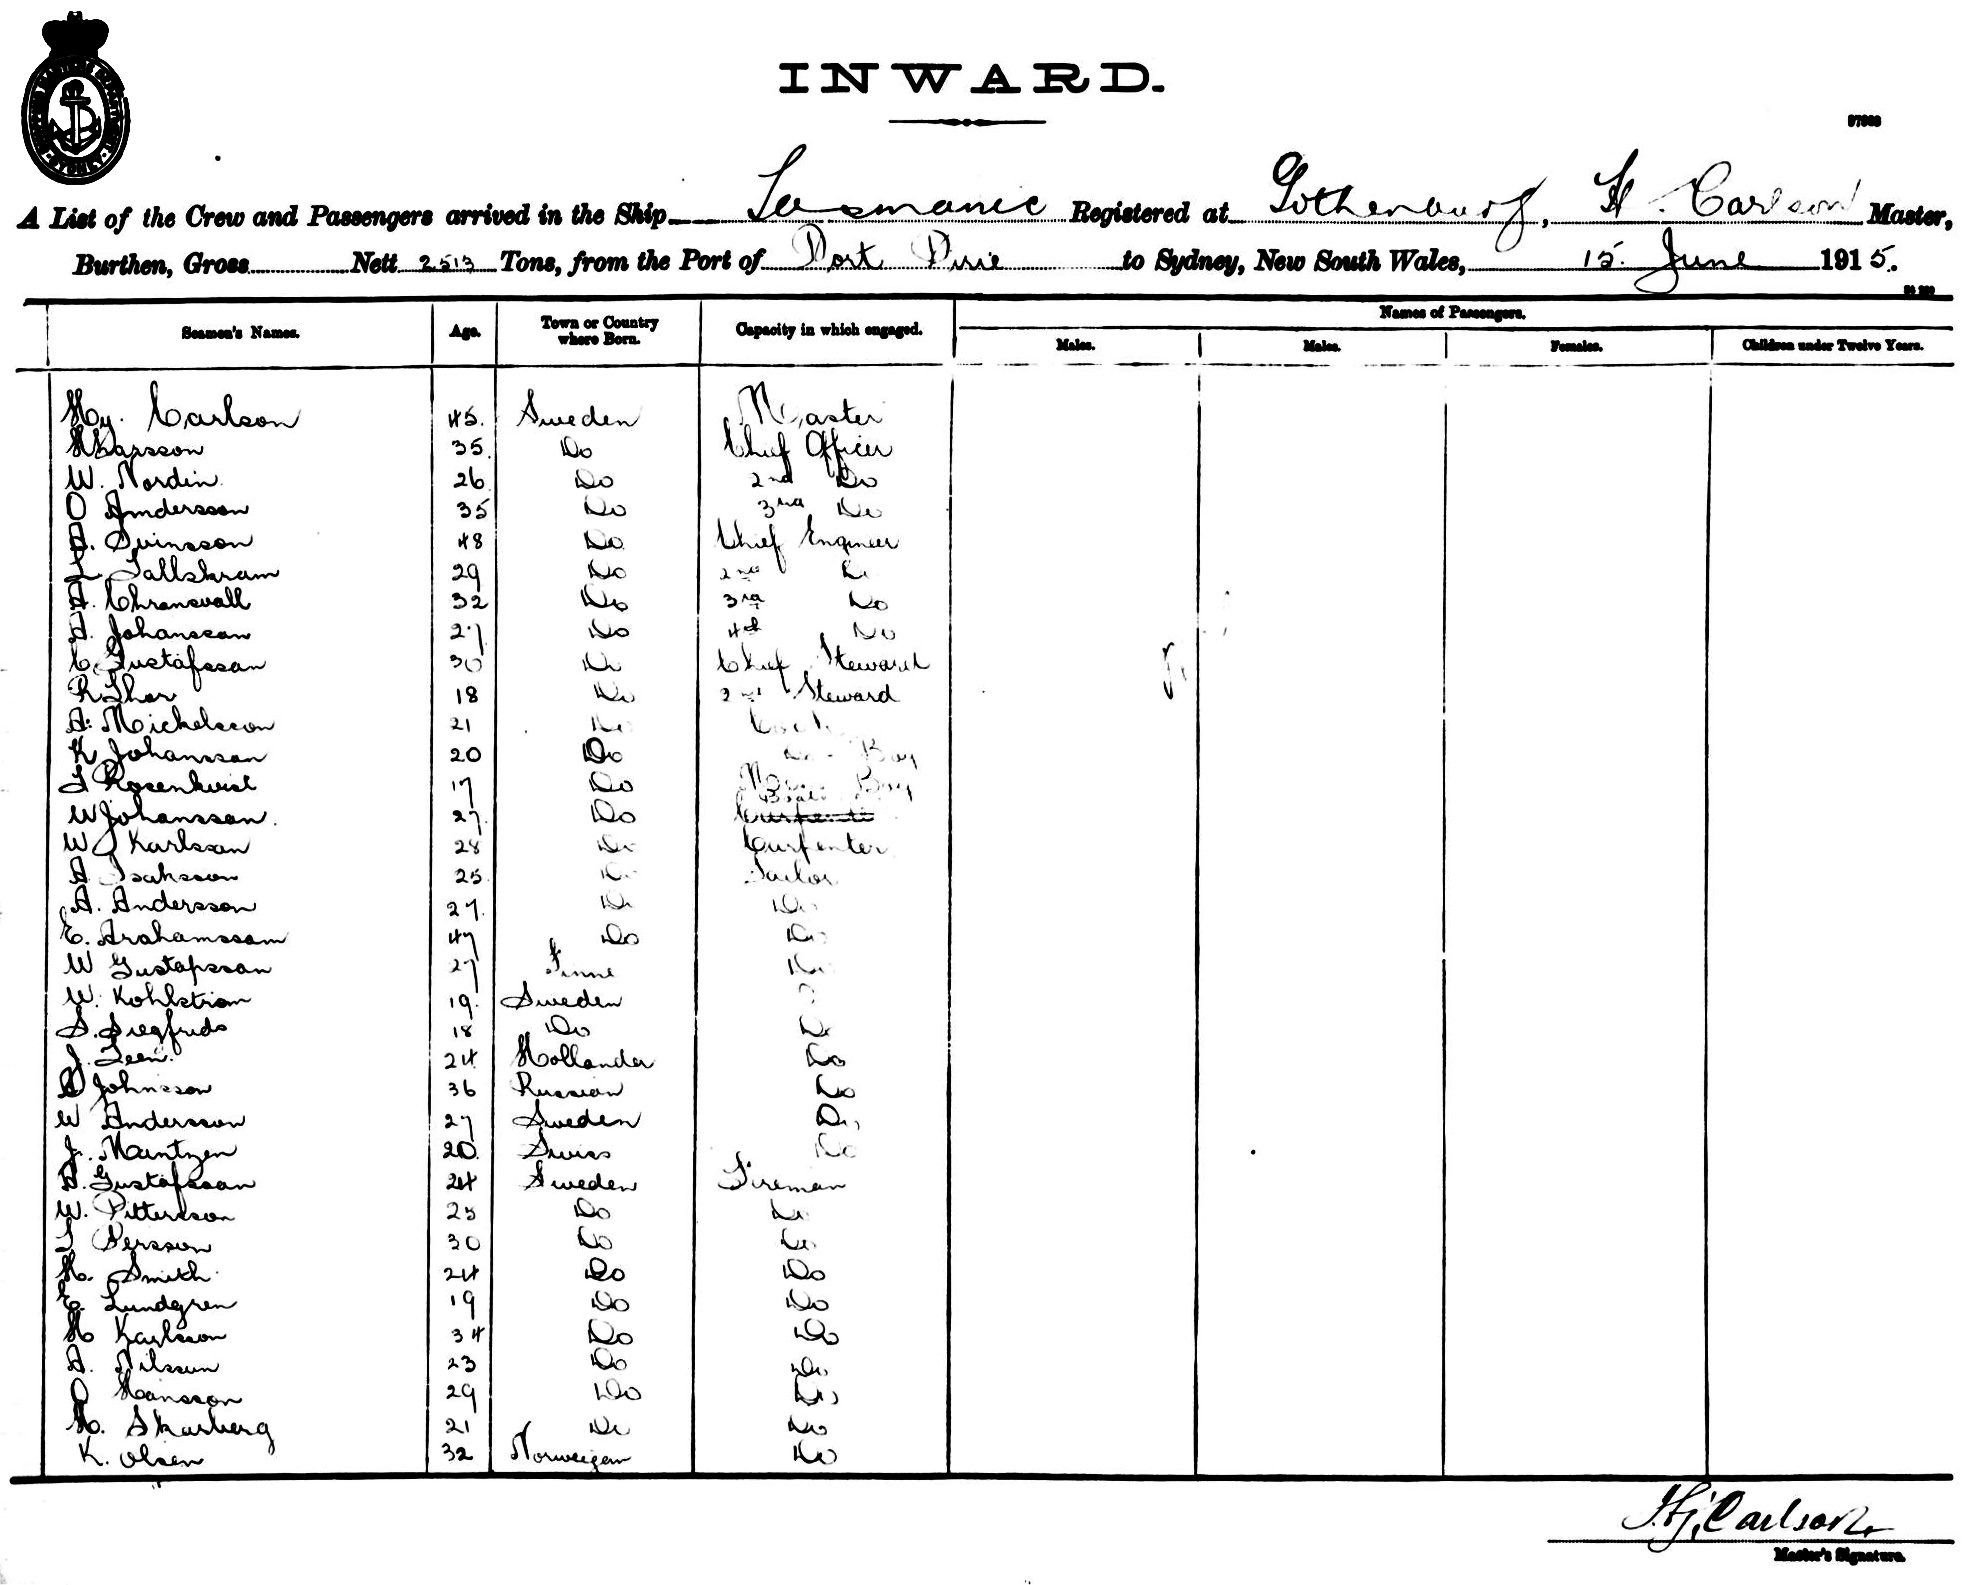 INWARD.
A List of the Crew and Passengers arrived in the Ship Tasmanic Registered at Gothenburg, H. Carlson Master,
Burthen, Gross Nett 2513 Tons, from the Port of Port Pirie to Sydney, New South Wales, 15. June 1915.
Names of Passengers.
Seamen's Names. Age. Town or Country where Born. Capacity in which engaged. Males. Males. Females. Children under Twelve Years.
Hj. Carlson 45. Sweden Master
Larsson 35. Do Chief Officer
W. Nordin 26 Do 2nd Do
O Andersson 35 Do 3rd Do
A. Svinsson 48 Do Chief Engineer
29 Do 2nd Do
A. 32 Do 3rd Do
Johansson 27 Do 4th Do
C. Gustafsson 30 Do Chief Steward
R Thor 18 Do 2nd Steward
A. Mickelsson 21 Do Cook
K Johansson 20 Do Do Boy
Rosenkvist 17 Do Mess Boy
W Johansson. 27. Do
W Karlsson 28 Do Carpenter
A Isaksson 25 Do Sailor
A. Andersson 27. Do Do
E. Arahamsson 47 Do Do
W Gustafsson 27 Finne Do
W. Kohlstrom 19. Sweden
S. Siegfrids 18 Do Do
J. Leen. 24 Hollander Do
Johnsson 36 Russian Do
W Andersson 27 Sweden Do
J. Mantzen 20. Swiss Do
A. Gustafsson 24 Sweden Fireman
W. Pittersson 25 Do Do
Persson 30 Do Do
H. Smith 24 Do Do
E. Lundgren 19 Do Do
H Karlsson 34 Do Do
A. Nilsson 23 Do Do
O Hansson 29 Do Do
H. Skarberg 21 Do Do
K. Olsen 32 Norweigan Do
Hj. Carlson
Master's Signature.